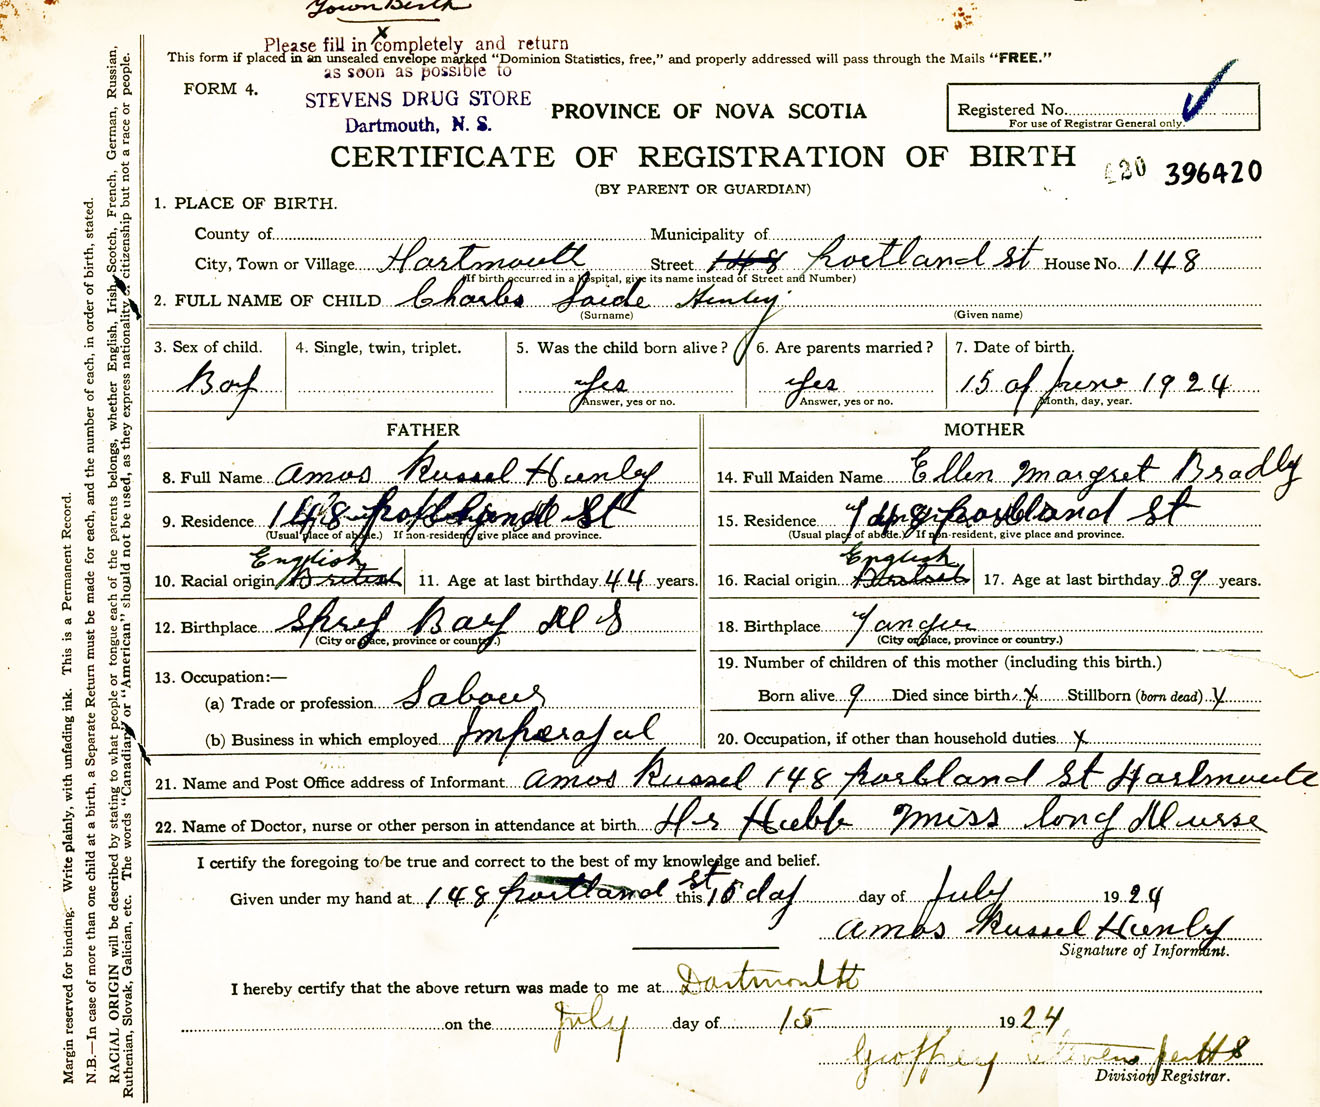 Town Birth
x
Please fill in completely and return
This form if placed in an unsealed envelope marked "Dominion Statistics, free," and properly addressed will pass through the Mails "FREE."
as soon as possible to
FORM 4.
STEVENS DRUG STORE
Dartmouth, N. S.
PROVINCE OF NOVA SCOTIA
Registered No.
For use of Registrar General only.
CERTIFICATE OF REGISTRATION OF BIRTH
420 396420
(BY PARENT OR GUARDIAN)
1. PLACE OF BIRTH.
County of Municipality of
City, Town or Village Hartmouth Street 148 Portland St House No. 148
(If birth occurred in a hospital, give its name instead of Street and Number)
2. FULL NAME OF CHILD Charles Henley
(Surname) (Given name)
3. Sex of child. 4. Single, twin, triplet. 5. Was the child born alive? 6. Are parents married? 7. Date of birth.
Boy yes yes 15 of June 1924
Answer, yes or no. Answer, yes or no. Month, day, year.
FATHER MOTHER
8. Full Name Amos Russel Hunly 14. Full Maiden Name Ellen Margret Bradly
9. Residence 148 Portland St 15. Residence 148 Portland St
(Usual place of abode.) If non-resident, give place and province. (Usual place of abode.) If non-resident, give place and province.
English English
10. Racial origin British 11. Age at last birthday 44 years. 16. Racial origin British 17. Age at last birthday 39 years.
12. Birthplace Spry Bay N S 18. Birthplace Tangier
(City or place, province or country.) (City or place, province or country.)
13. Occupation:— 19. Number of children of this mother (including this birth.)
(a) Trade or profession Labour Born alive 9 Died since birth x Stillborn (born dead) x
(b) Business in which employed Imperajal 20. Occupation, if other than household duties x
21. Name and Post Office address of Informant Amos Russel 148 Portland St Hartmoute
22. Name of Doctor, nurse or other person in attendance at birth Hr Hebb Miss long Nurse
I certify the foregoing to be true and correct to the best of my knowledge and belief.
Given under my hand at 148 Portland St this 15 day day of July 1924
Amos Russel Hunly
Signature of Informant.
I hereby certify that the above return was made to me at Dartmouth
on the July day of 15 1924
Geoffrey Stevens
Division Registrar.
Margin reserved for binding. Write plainly, with unfading ink. This is a Permanent Record.
N.B.—In case of more than one child at a birth, a Separate Return must be made for each, and the number of each, in order of birth, stated.
RACIAL ORIGIN will be described by stating to what people or tongue each of the parents belongs, whether English, Irish, Scotch, French, German, Russian,
Ruthenian, Slovak, Galician, etc. The words "Canadian" or "American" should not be used, as they express nationality or citizenship but not a race or people.